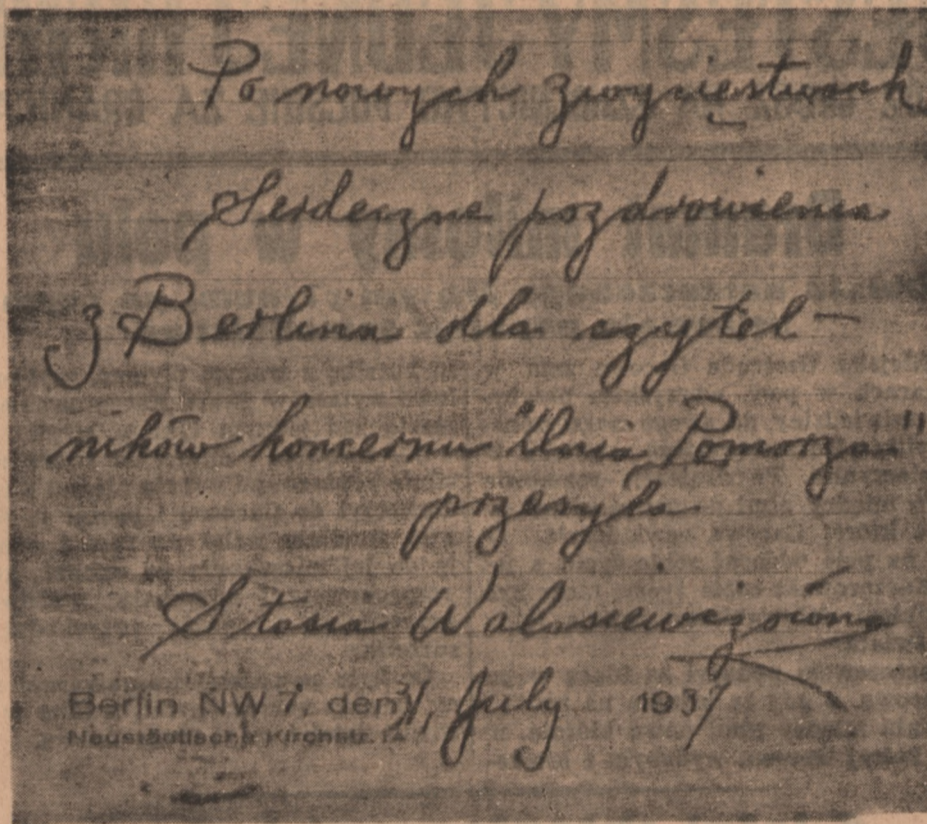 Po nowych zwycięstwach
Serdeczne pozdrowienia
z Berlina dla czytel-
ników koncernu "Dnia Pomorza"
przesyła
Stasia Walasiewiczówna
Berlin NW 7, den 31, July 1937
Neustädtische Kirchstr.